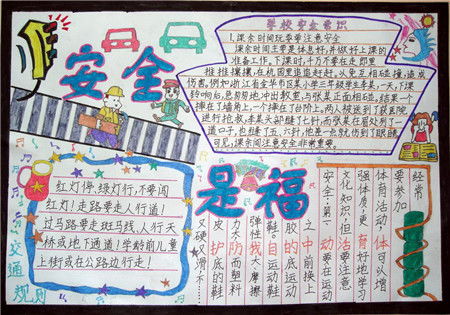 安全
是福
学校安全常识
1.课余时间玩耍要注意安全
课余时间主要是休息好,并做好上课的
准备工作。下课时,千万不要在走廊里
推推攘攘,在校园里追追赶赶,以免互相碰撞,造成
伤害。例如:浙江省金华市区某小学三年级学生李某,一天,下课
铃响后,急匆匆地冲出教室,与张某正面相碰,结果一个
摔在了墙角上,一个摔在了台阶上,两人被送到了医院
进行抢救,李某头部缝了七针,而张某在眉处开了一
道口子,也缝了五、六针,他差一点就伤到了眼睛,
可见,课余间注意安全非常重要。
红灯停,绿灯行,不要闯
红灯!走路要走人行道!
过马路要走斑马线、人行天
桥或地下通道!学龄前儿童
上街或在公路边行走!
交通规则
经常
要参加
体育活动,体可以增
强体质,更育好地学习
文化知识,但活要注意
安全:第一动要在运动
之中前换上
胶的底运动
鞋。自运动
弹性我大摩擦
力,防而塑料
皮护底的鞋
又硬又滑不